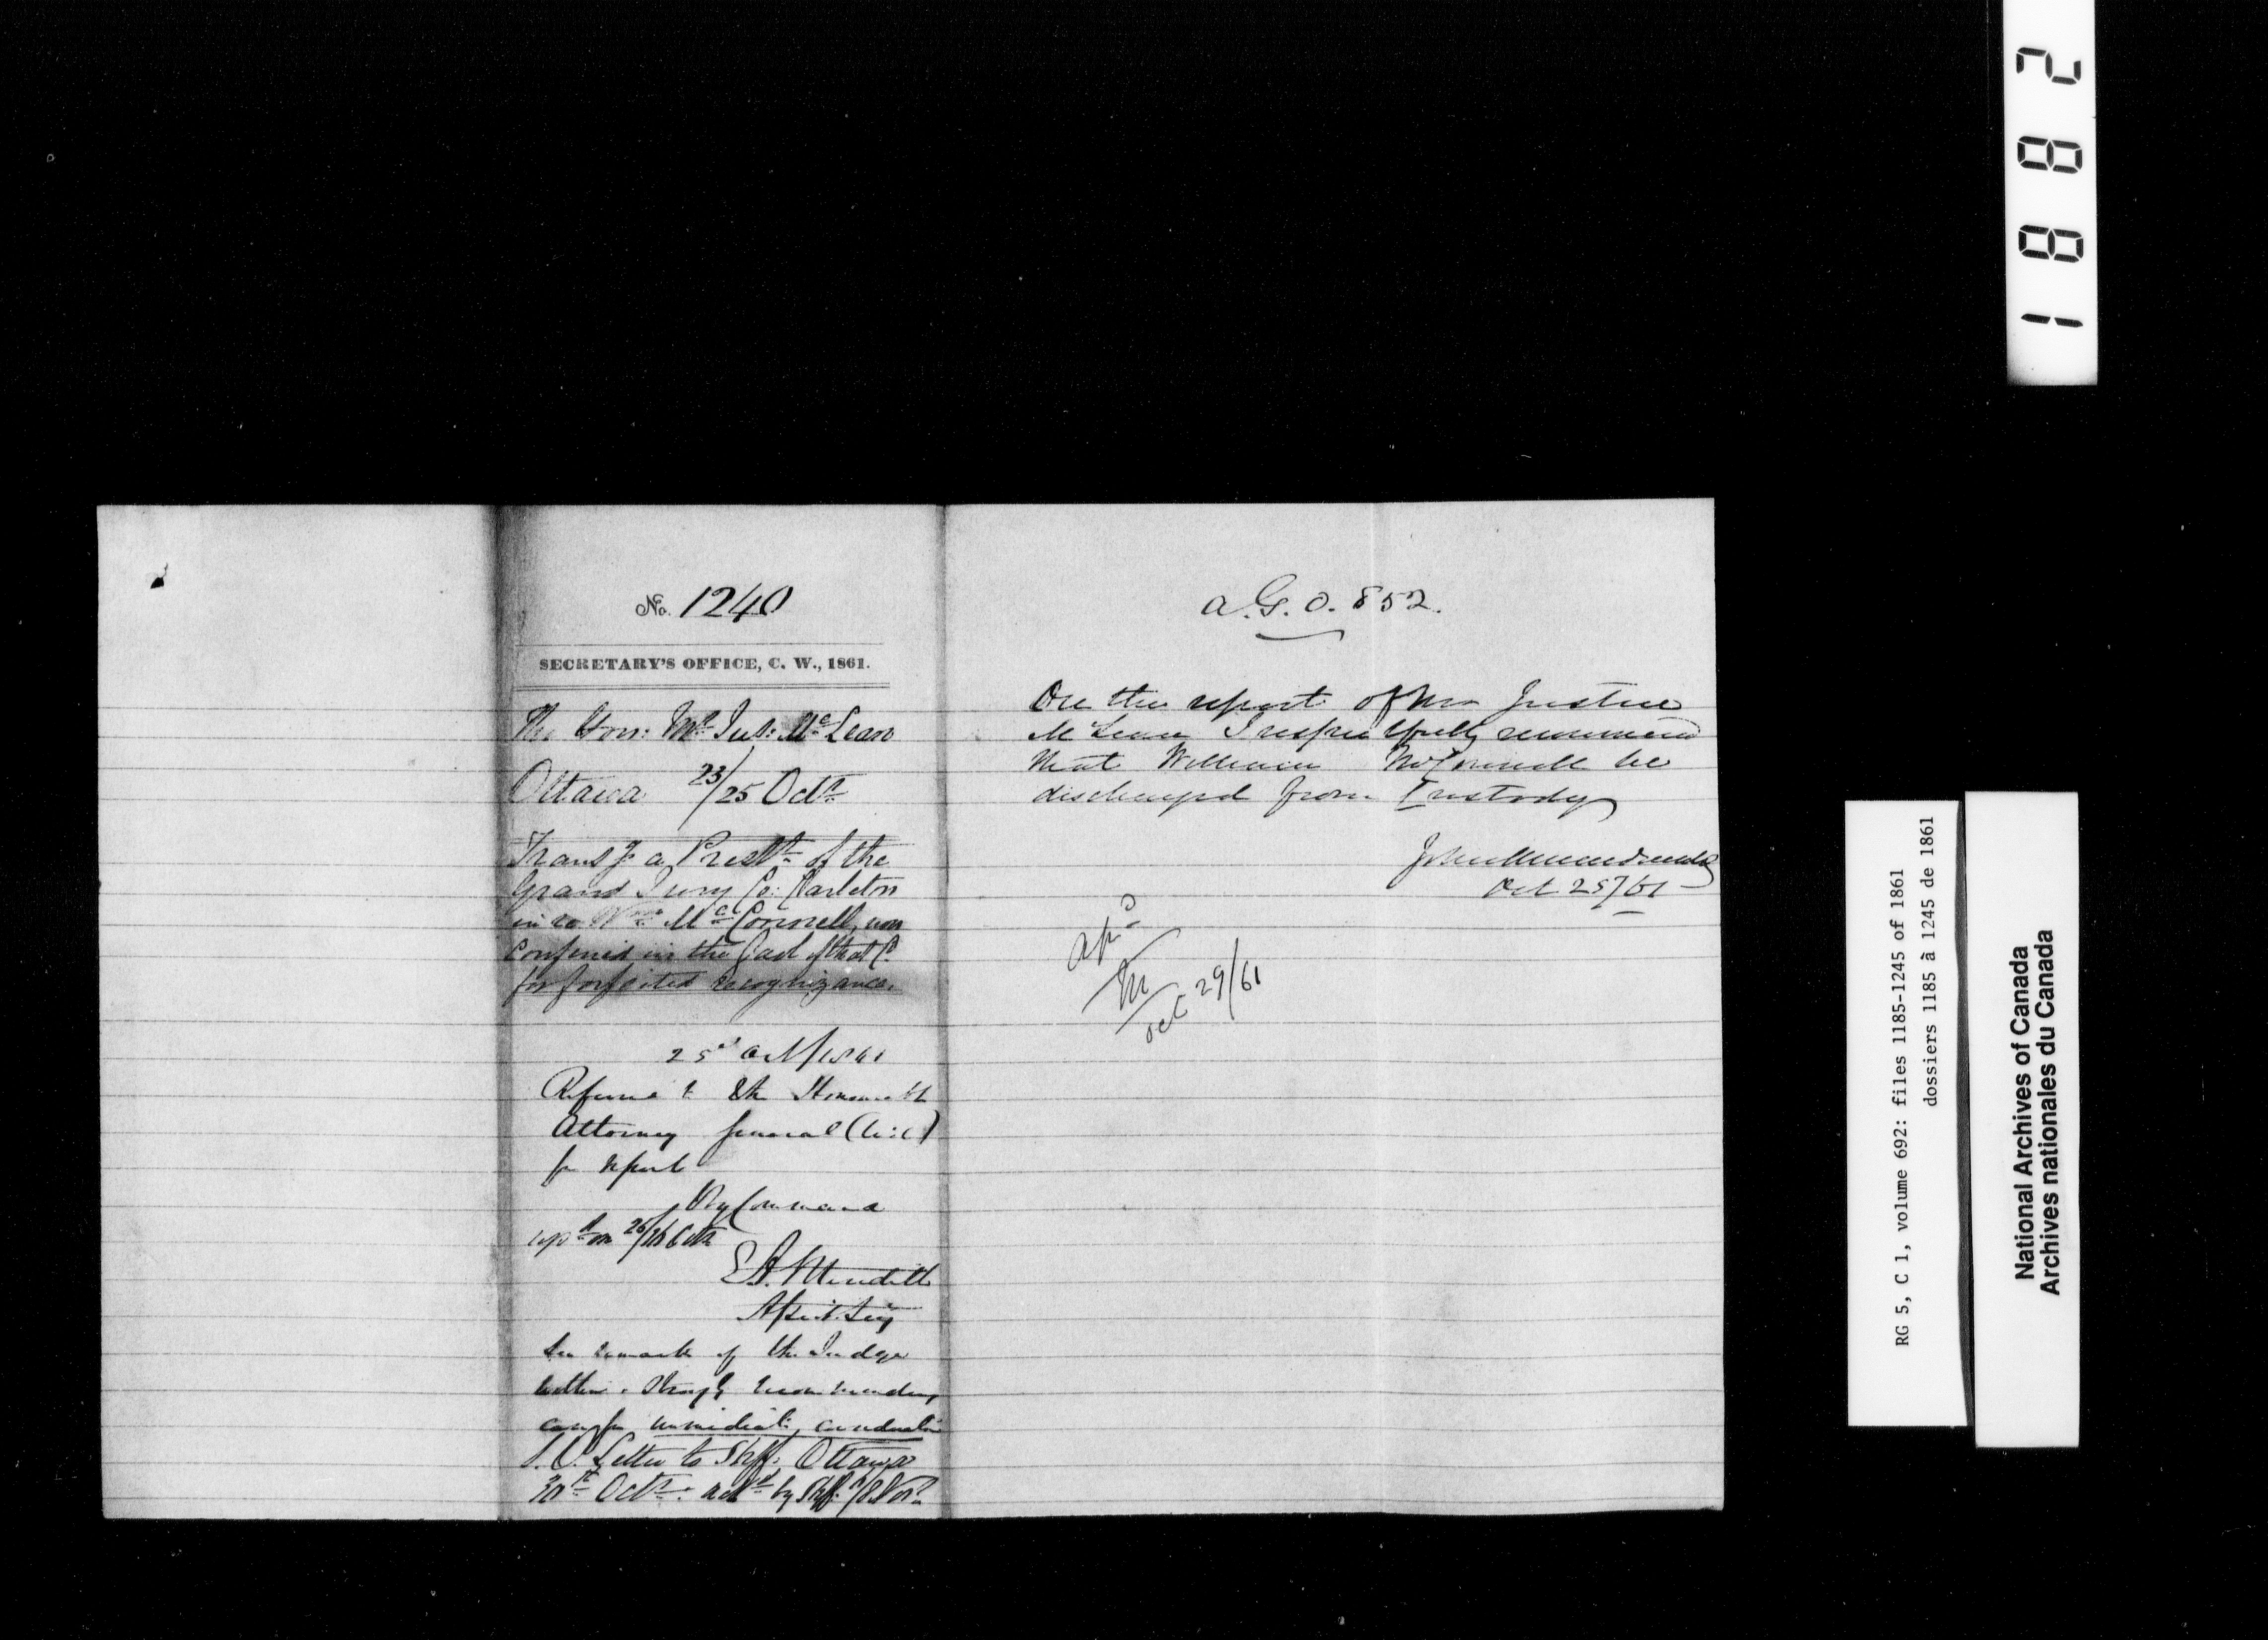 No. 1240
SECRETARY'S OFFICE, C. W., 1861.
The Hon: Mr. Jus: McLean
Ottawa 23/25 Octr.
Transg. a Presktt. of the
Grand Jury Co: Carleton
in re Wm. McConnell, now
confined in the Gaol of that Co.
for forfeited recognizance.
25th Oct/1861
Referred to the Honourable
Attorney General (C:W:)
for report
By Command
E A. Meredith
Assist. Secy
See remark of the Judge
within strongly recommending
case for immediate consideration
Letter to Shff. Ottawa
30th Octr. ackd by Shff.
A. G. O. 852.
On the report of Mr Justice
McLean I respectfully recommend
that William McConnell be
discharged from Custody
John A Macdonald
Oct 25/61
apd
M
Oct 29/61
1882
RG 5, C 1, volume 692: files 1185-1245 of 1861
dossiers 1185 à 1245 de 1861
National Archives of Canada
Archives nationales du Canada